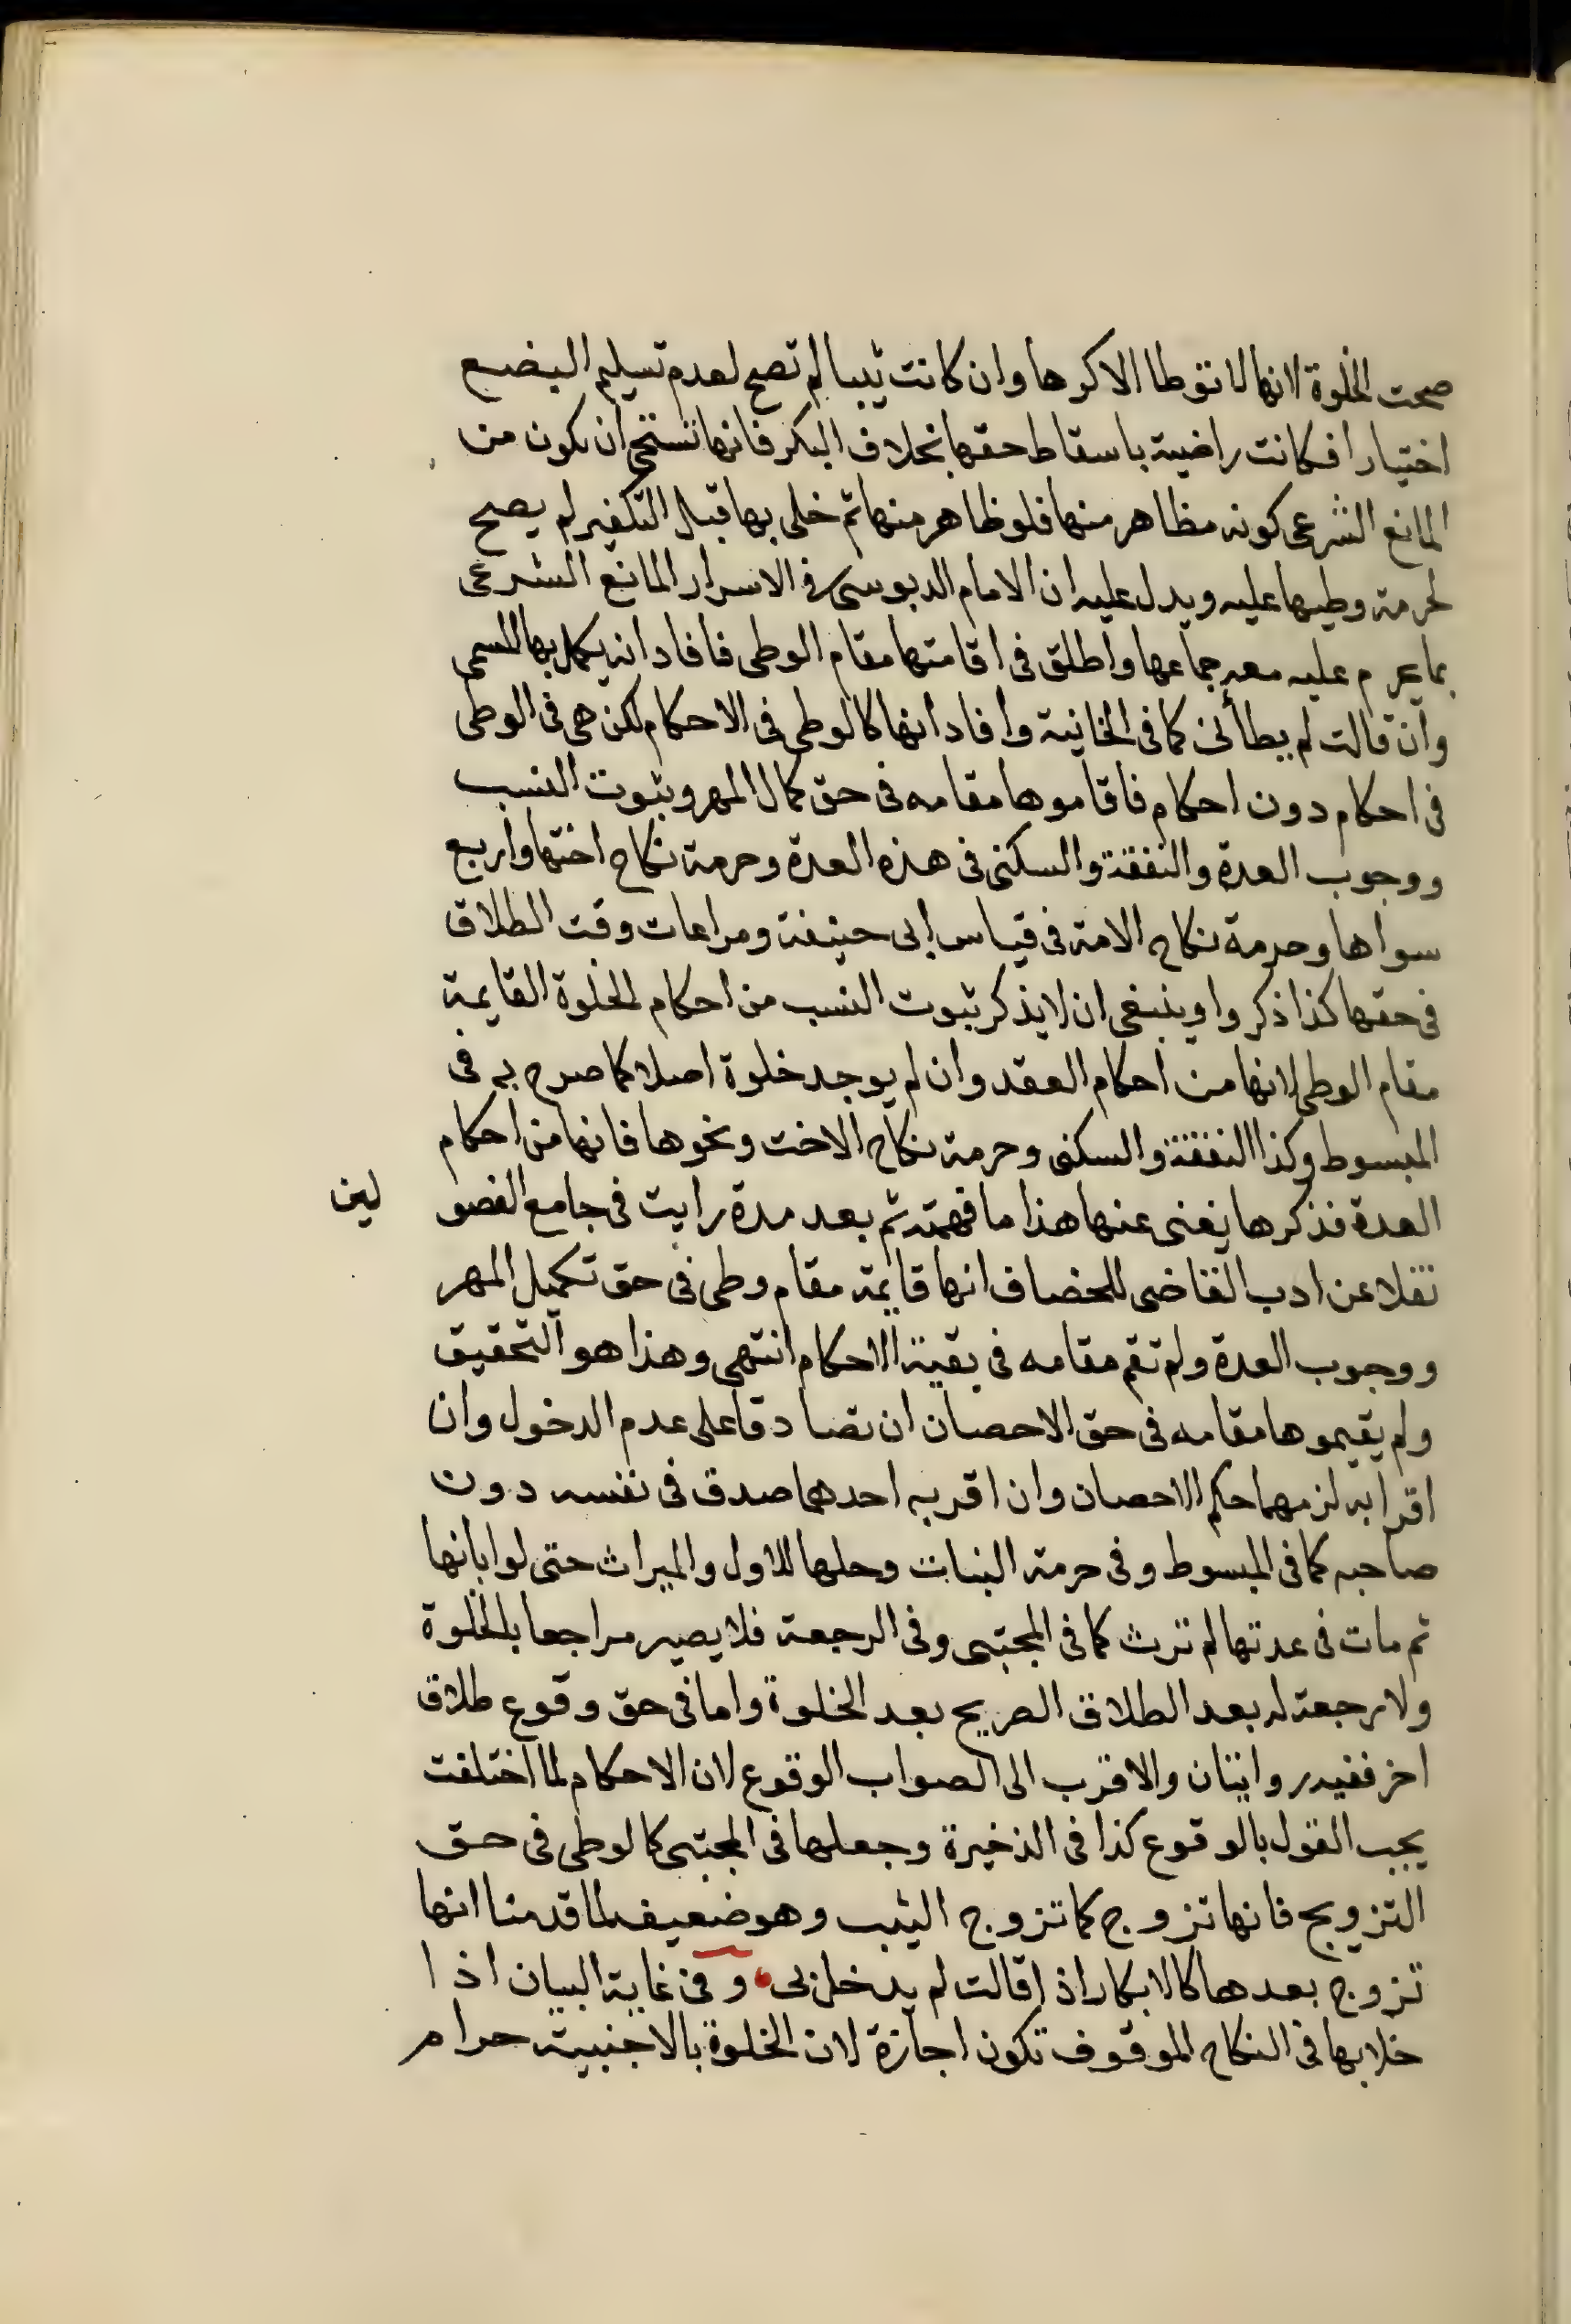 صحت الخلوة لانها لا توطا الا كرها وان كانت ثيبا لم تصح لعدم تسليم البضع
اختيارا فكانت راضية باسقاط حقها بخلاف البكر فانها تستحي ان تكون من
المانع الشرعى كونه مظاهر منها فلو ظاهر منها ثم خلى بها قبل التكفير لم يصح
لحرمة وطيها عليه ويدل عليه ان الامام الدبوسى فى الاسرار المانع الشرعى
بما يحرم عليه معه جماعها واطلق فى اقامتها مقام الوطى فافاد انه يكمل بها المسمى
وان قالت لم يطأنى كما فى الخانية وافاد انها كالوطى فى الاحكام لكن هى فى الوطى
فى احكام دون احكام فاقاموها مقامه فى حق كمال المهر وثبوت النسب
ووجوب العدة والنفقة والسكنى فى هذه العدة وحرمة نكاح اختها واربع
سواها وحرمة نكاح الامة فى قياس ابى حنيفة ومراعات وقت الطلاق
فى حقها كذا ذكروا وينبغى ان لا يذكر ثبوت النسب من احكام الخلوة القايمة
مقام الوطى لانها من احكام العقد وان لم يوجد خلوة اصلا كما صرح به فى
المبسوط وكذا النفقة والسكنى وحرمة نكاح الاخت ونحوها فانها من احكام
العدة فذكرها يغنى عنها هذا ما فهمته ثم بعد مدة رايت فى جامع الفصو لين
نقلا عن ادب القاضى للخصاف انها قايمة مقام وطى فى حق تكميل المهر
ووجوب العدة ولم تقم مقامه فى بقية الاحكام انتهى وهذا هو التحقيق
ولم يقيموها مقامه فى حق الاحصان ان تصادقا على عدم الدخول وان
اقرا به لزمهما حكم الاحصان وان اقر به احدهما صدق فى نفسه دون
صاحبه كما فى المبسوط وفى حرمة البنات وحلها للاول والميراث حتى لو ابانها
ثم مات فى عدتها لم ترث كما فى المجتبى وفى الرجعة فلا يصير مراجعا بالخلوة
ولا رجعة له بعد الطلاق الصريح بعد الخلوة واما فى حق وقوع طلاق
اخر ففيه روايتان والاقرب الى الصواب الوقوع لان الاحكام لما اختلفت
يجب القول بالوقوع كذا فى الذخيرة وجعلها فى المجتبى كالوطى فى حق
التزويج فانها تزوج كما تزوج الثيب وهو ضعيف لما قدمنا انها
تزوج بعدها كالابكار اذا قالت لم يدخل بى وفى غاية البيان اذا
خلا بها فى النكاح الموقوف تكون اجازة لان الخلوة بالاجنبية حرام